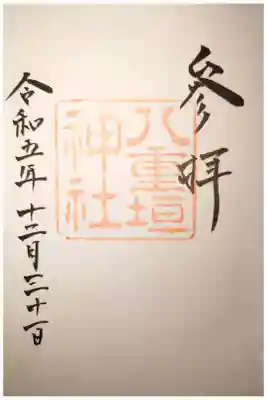 参拝
八重垣
神社
令和五年 十二月三十一日